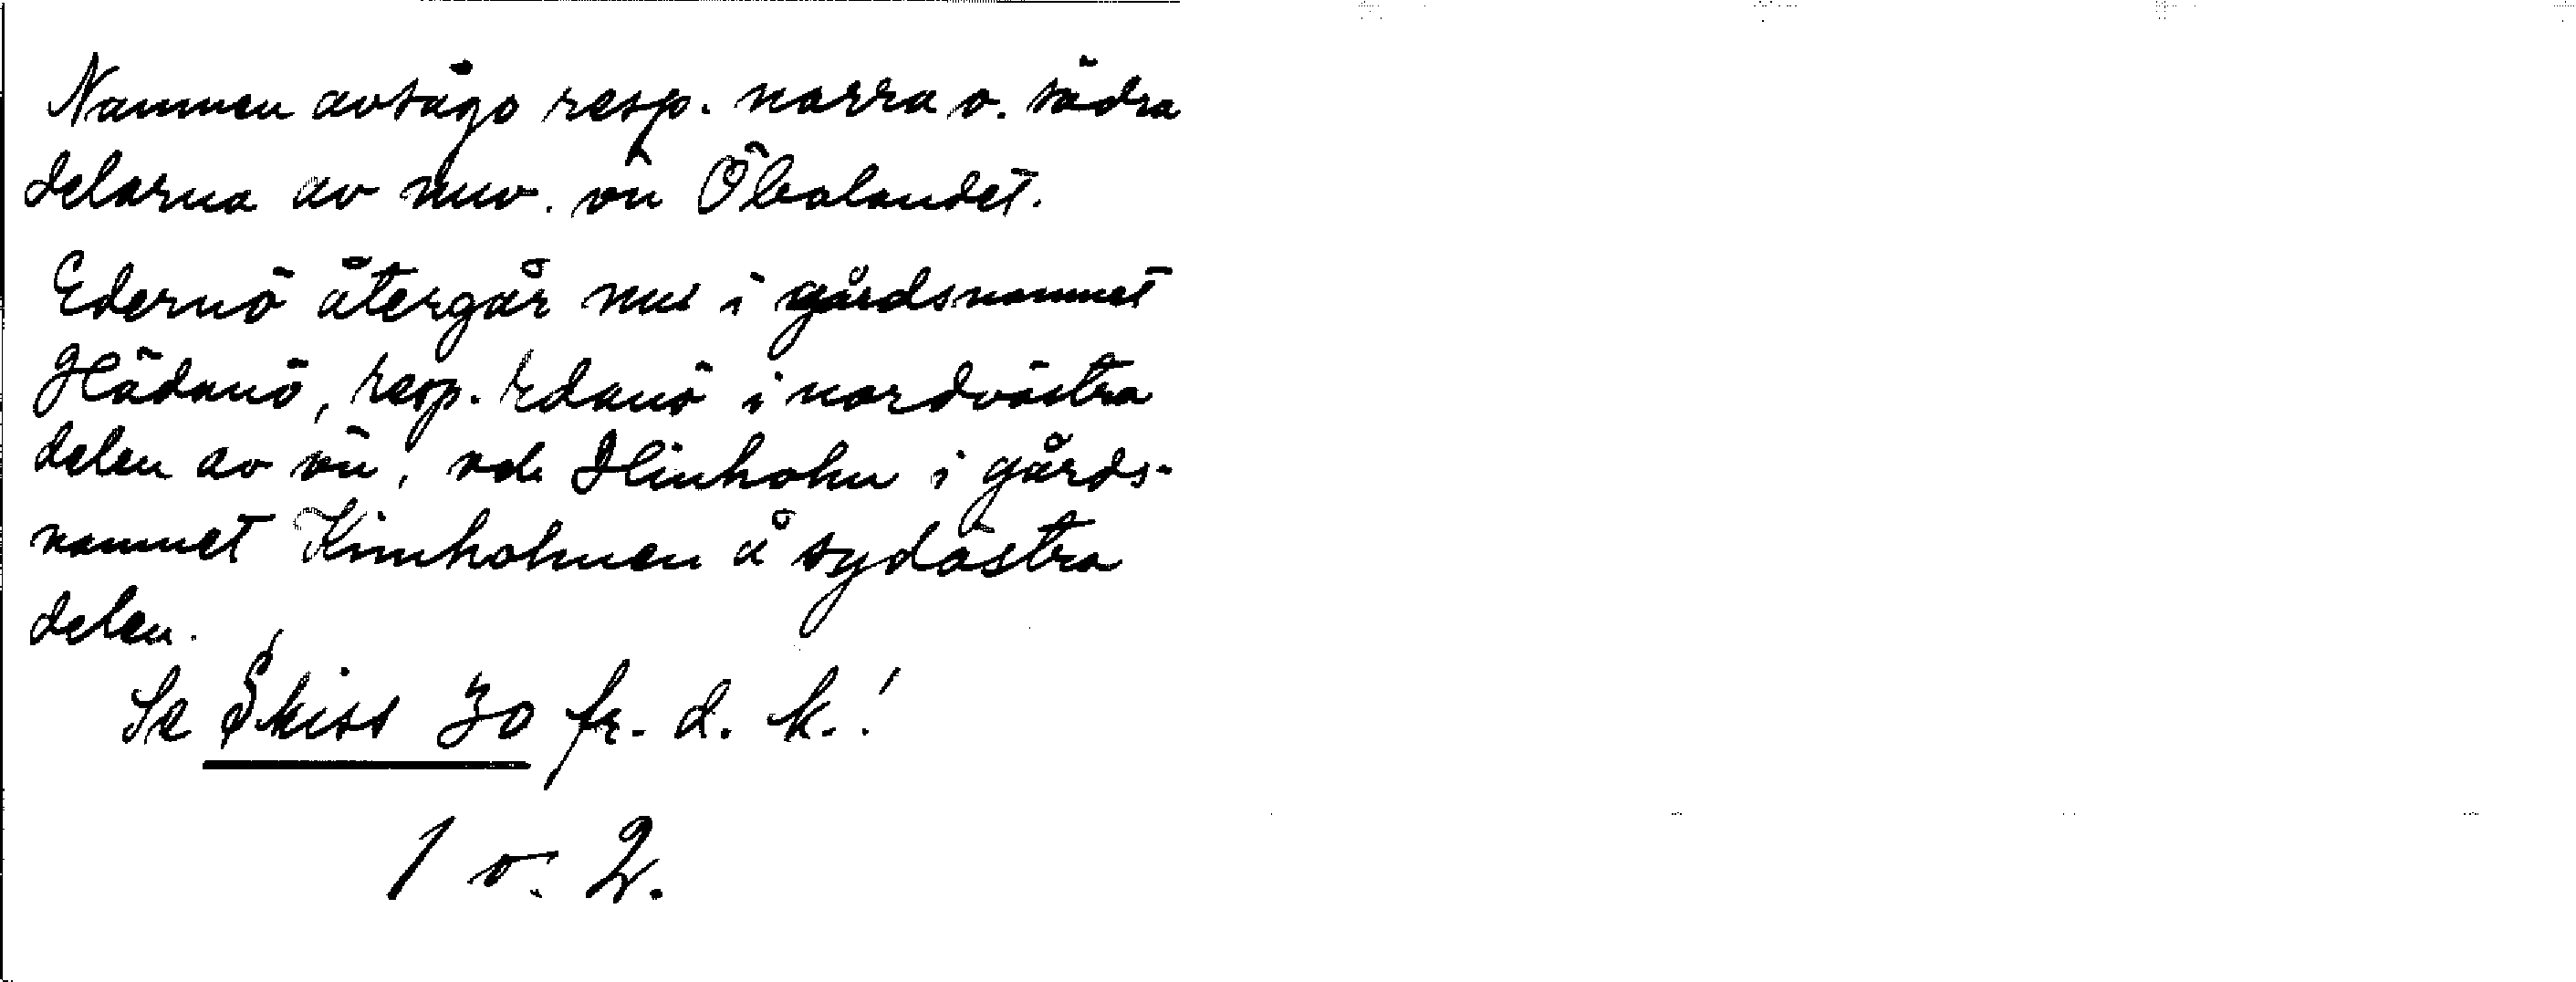 Namnen avsågo resp. norra o. södra
delarna av nuv. ön Öbolandet.
Edernö återgår nu i gårdsnamnet
Hädanö, resp. Edanö i nordvästra
delen av ön, och Hinholm i gårds-
namnet Kinnholmen å sydöstra
delen.
Se Skiss 30 fr. d. k.!
1 o. 2.